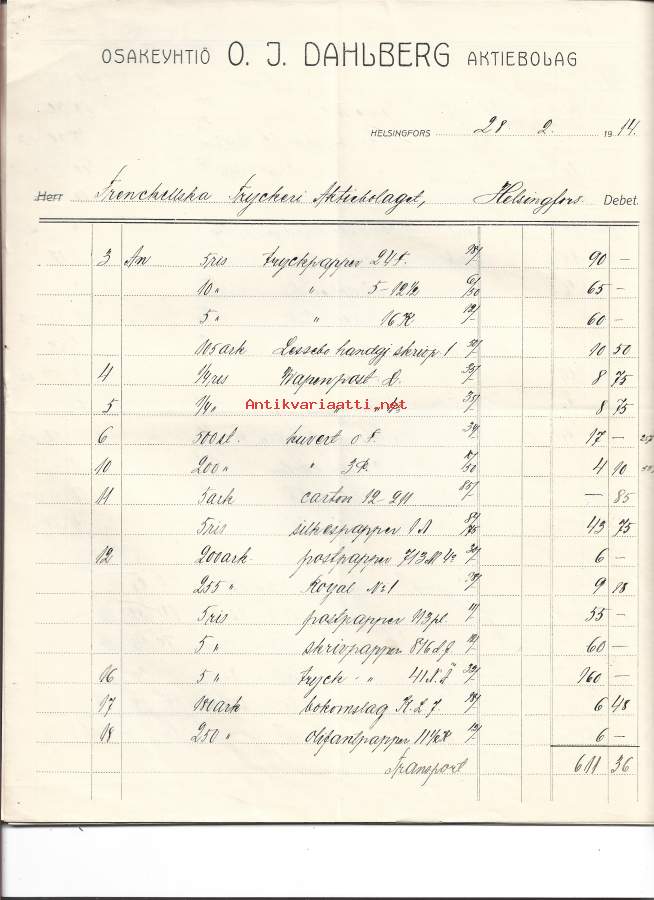 OSAKEYHTIÖ O. J. DAHLBERG AKTIEBOLAG
HELSINGFORS 28. 2. 1914.
Herr Frenckellska Tryckeri Aktiebolaget, Helsingfors Debet
3 An 5 ris tryckpapper 24 F. 90 –
10 " " 5–12½ 6/50 65 –
5 " " 16 K 12/– 60 –
105 ark Lessebo handgj skrivp 1 10 50
4 1/4 ris Wapenpost D. 35/– 8 75
5 1/4 " " " 35/– 8 75
Antikvariaatti.net
6 500 st. kuvert o F. 34/– 17 –
10 200 " " 3 R. 4 10
11 5 ark carton 12–211 85/– – 85
5 ris silkespapper 1 A 8/75 43 75
12 200 ark postpapper 713 30/– 6 –
255 " Royal No 1 9 18
5 ris postpapper 113 pl. 11/– 55 –
5 " skrivpapper 12/– 60 –
16 5 " tryck " 41 32/– 160 –
17 ark bokomslag K. L 7. 6 48
18 250 " olefantpapper 6 –
Transport 611 36